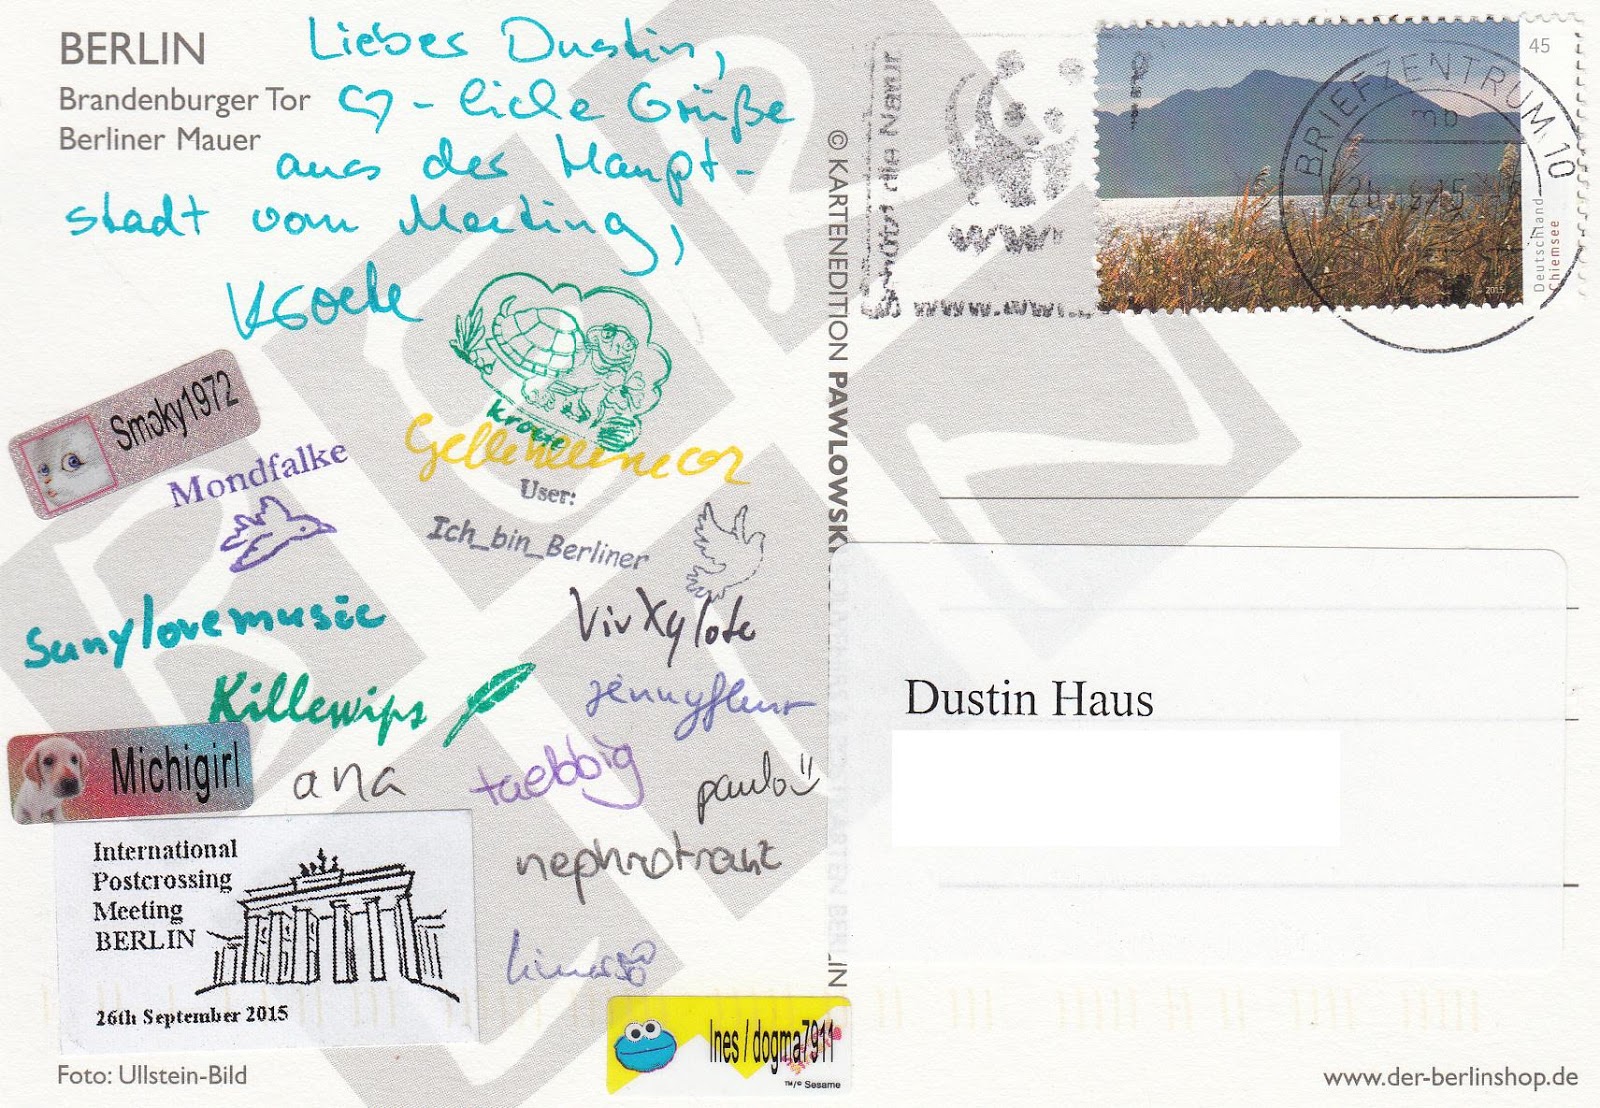 BERLIN
Brandenburger Tor
Berliner Mauer
Liebes Dustin,
♡-liche Grüße
aus der Haupt-
stadt vom Meeting,
kroete
kroete
Smoky1972
Mondfalke
User:
Ich_bin_Berliner
Sunylovemusic
VivXylote
Killewips
jennyfleur
Michigirl
ana
taebbig
paulo
International
Postcrossing
Meeting
BERLIN
26th September 2015
Ines / dogma7911
™/© Sesame
Foto: Ullstein-Bild
© KARTENEDITION PAWLOWSKI
45
Deutschland
Chiemsee
2015
BRIEFZENTRUM 10
mb
Dustin Haus
www.der-berlinshop.de